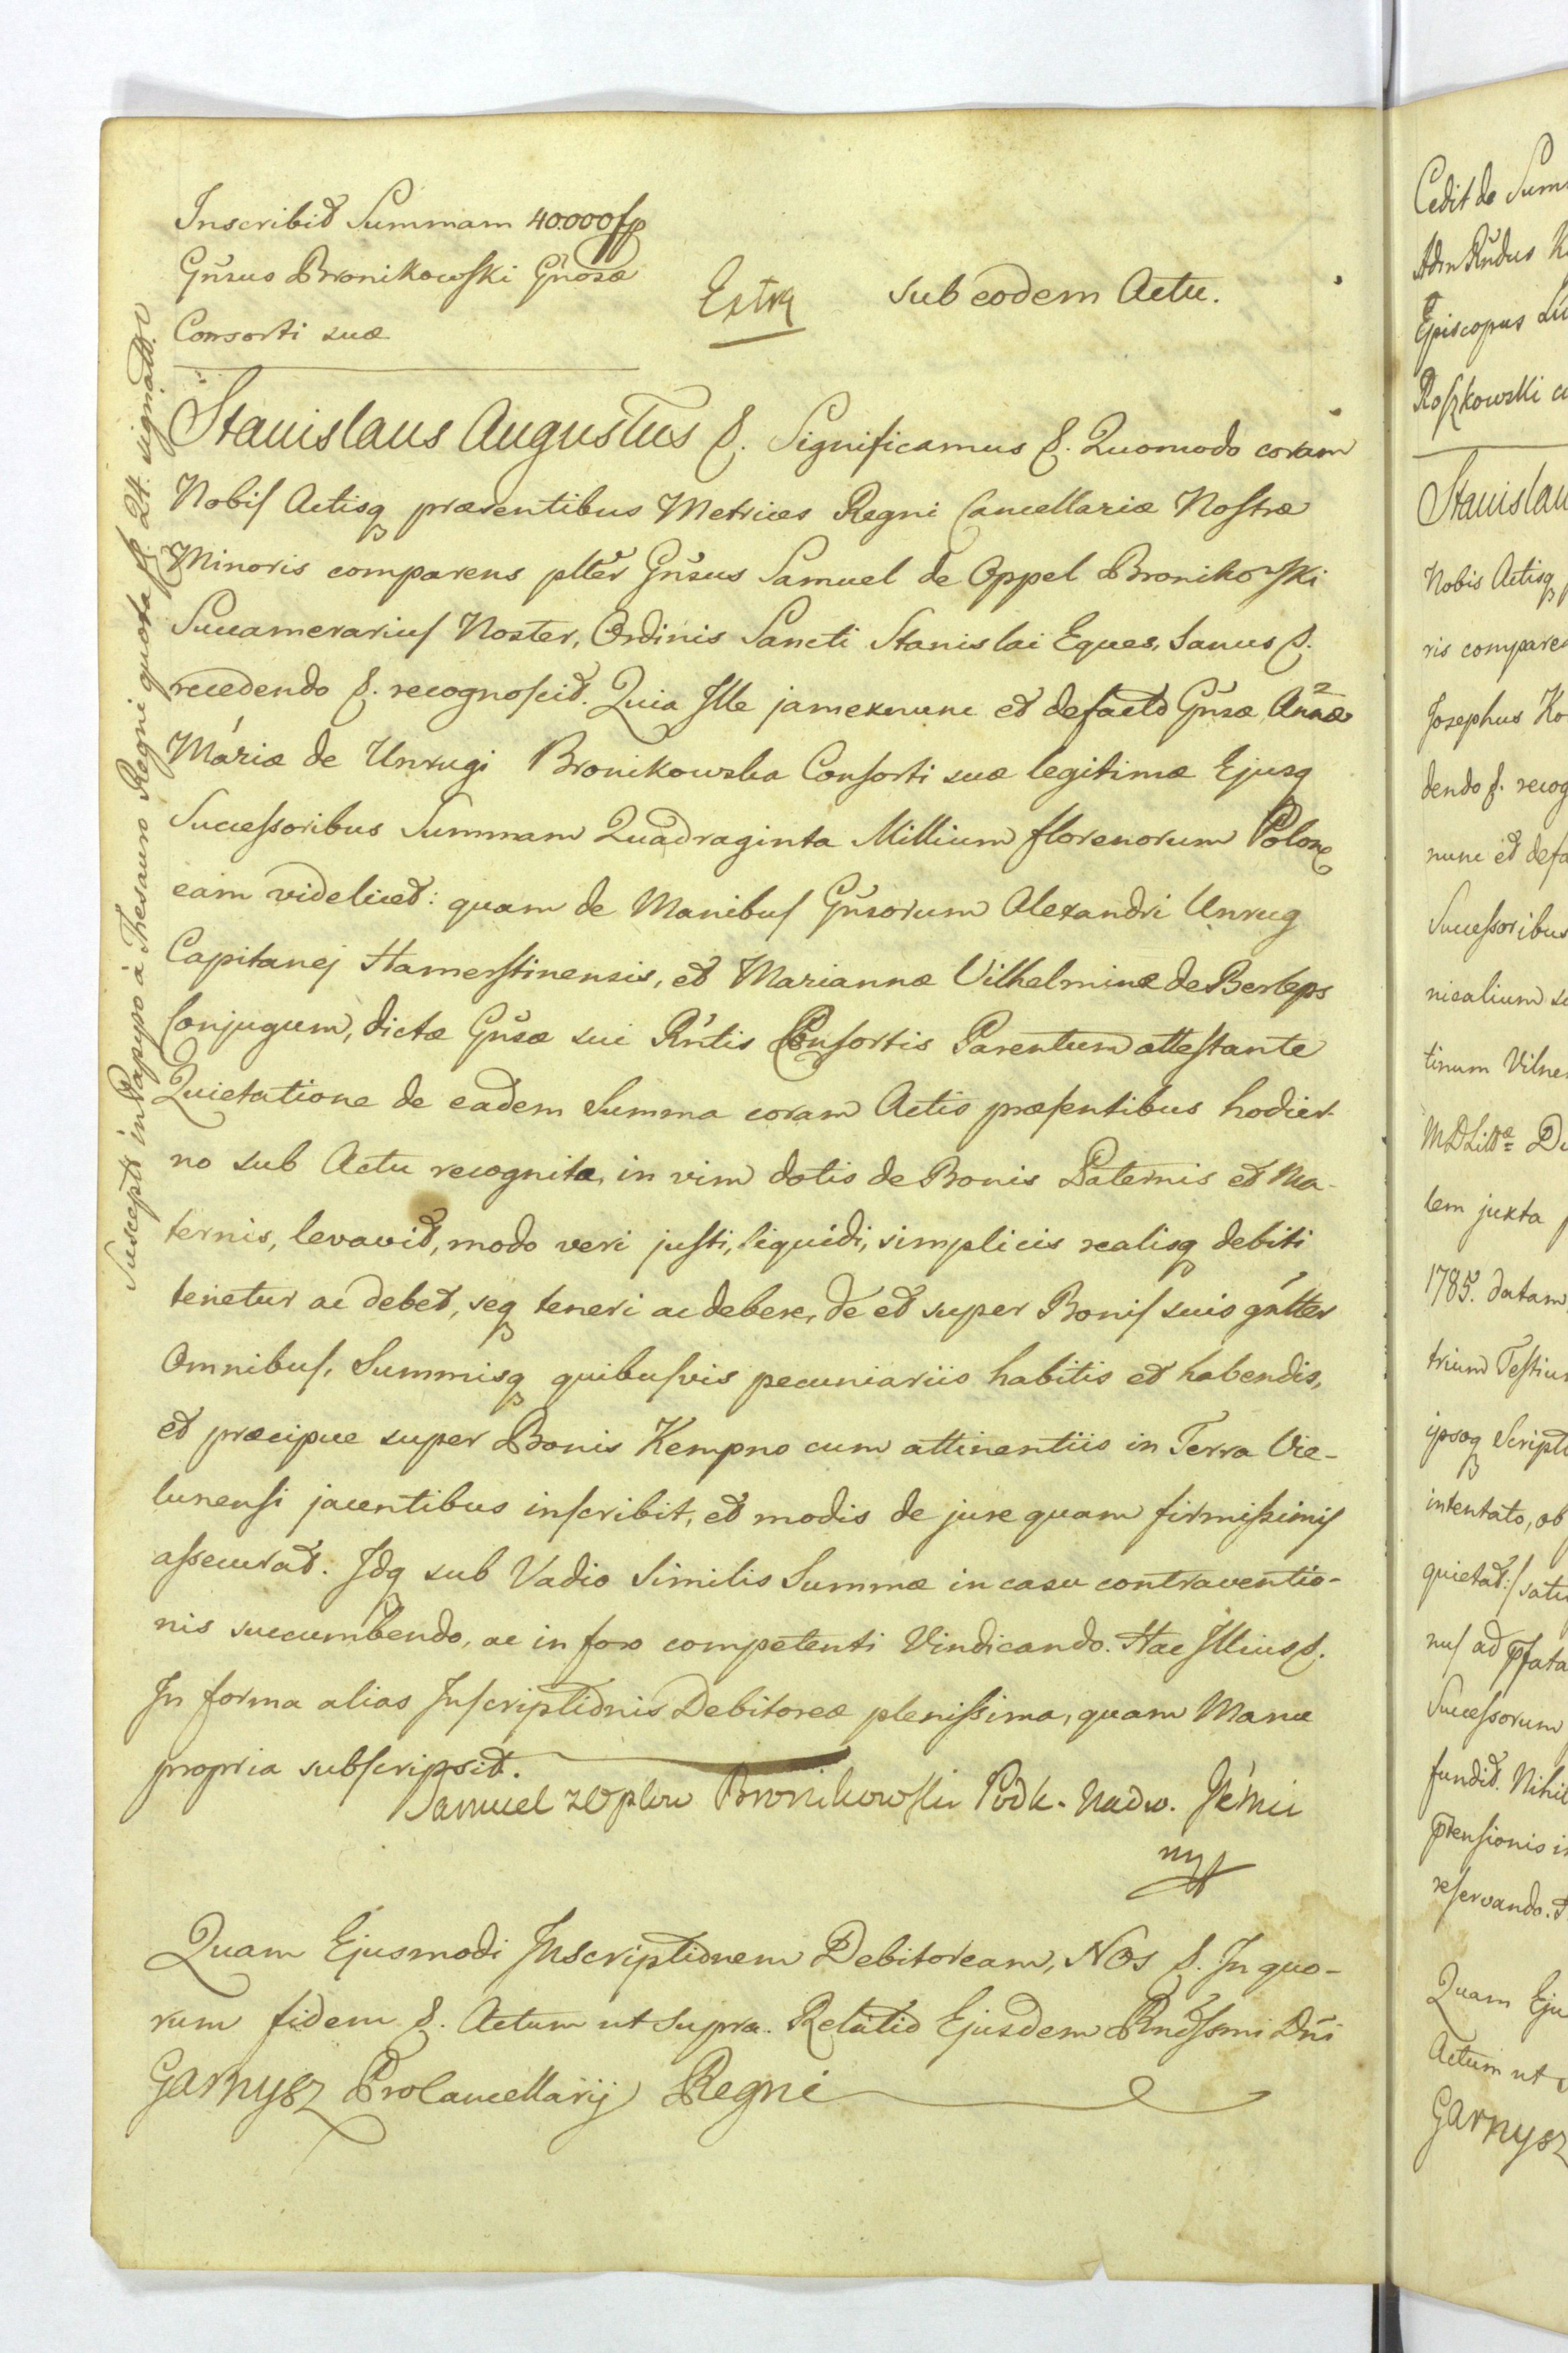 Inscribit Summam 40.000 fp
Gñsus Bronikowski Gñosæ
Consorti suæ
Extra
sub eodem Actu.
Suscepta in Papyro à Thesauro Regni quota fl. 24. signato.
Stanislaus Augustus &. Significamus &. Quomodo coram
Nobis Actisq præsentibus Metrices Regni Cancellariæ Nostræ
Minoris comparens pltĕr Gñsus Samuel de Oppel Bronikowski
Succamerarius Noster, Ordinis Sancti Stanislai Eques, sanus &.
recedendo &. recognoscit. Quia Ille jamexnunc et defacto Gñsæ Annæ
Mariæ de Unrugi Bronikowska Consorti suæ legitimæ Ejusq
Successoribus Summam Quadraginta Millium florenorum Polon
eam videlicet: quam de Manibus Gñsorum Alexandri Unrug
Capitanej Hamerstinensis, et Mariannæ Vilhelminæ de Berleps
Conjugum, dictæ Gñsæ sui Rñtis Consortis Parentum attestante
Quietatione de eadem Summa coram Actis præsentibus hodier-
no sub Actu recognita, in vim dotis de Bonis Paternis et Ma-
ternis, levavit, modo veri justi, liquidi, simplicis realisq debiti
tenetur ac debet, seq teneri ac debere, de et super Bonis suis gñlter
Omnibus, Summisq quibusvis pecuniariis habitis et habendis,
et præcipue super Bonis Kempno cum attinentiis in Terra Vie-
lunensi jacentibus inscribit, et modis de jure quam firmissimis
assecurat. Idq sub Vadio similis Summæ in casu contraventio-
nis succumbendo, ac in foro competenti Vindicando. Hac Illius &.
In forma alias Inscriptionis Debitoreæ plenissima, quam Manu
propria subscripsit.
Samuel z Oplow Bronikowski Podk. Nadw. JKmci
mp
Quam Ejusmodi Inscriptionem Debitoream, Nos &. In quo-
rum fidem &. Actum ut supra. Relatio Ejusdem Rndssmi Dñi
Garnysz ProCancellarij Regni
Cedit de Sum
Adm Rñdus
Episcopus
Roszkowski
Stanislau
Nobis Actisq
ris compare
Josephus Ko
dendo &. recog
nunc et defa
Successoribus
nicalium
tinum Vilne
MDLittæ
tem juxta
1785. datam
trium Testiu
ipsoq Script
intentato, ob
quietat:
nus ad pfata
Successorum
fundit. Nihil
ptensionis
reservando.
Quam Eju
Actum ut
Garnysz